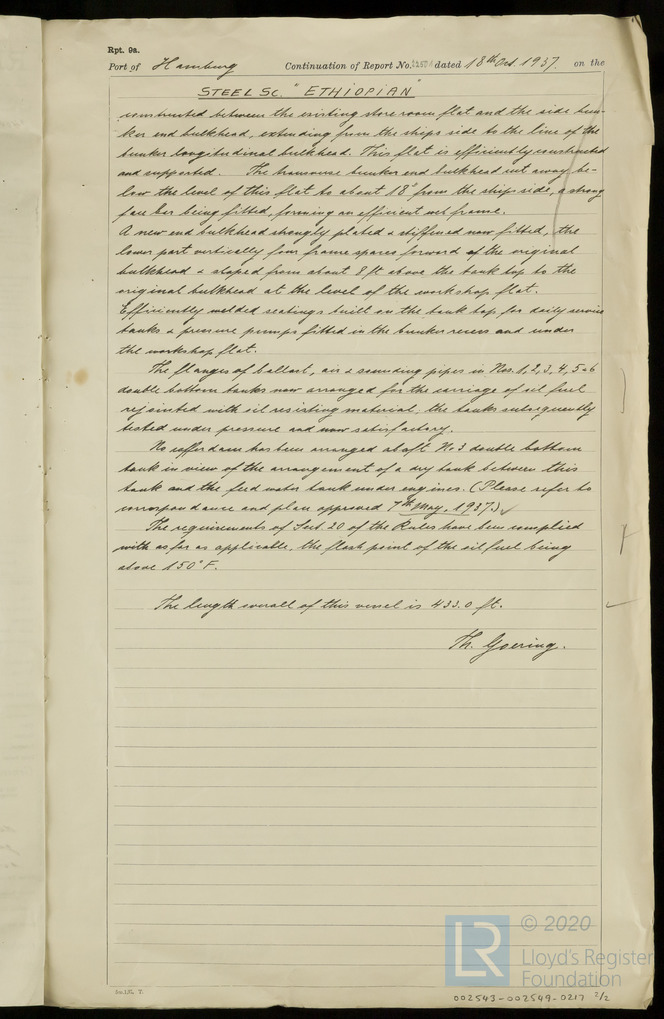 Rpt. 9a.
Port of Hamburg Continuation of Report No. dated 18th Oct. 1937. on the
STEEL SC. "ETHIOPIAN"
constructed between the existing store room flat and the side bun-
ker end bulkhead, extending from the ships side to the line of the
bunker longitudinal bulkhead. This flat is efficiently constructed
and supported. The transverse bunker end bulkhead cut away be-
low the level of this flat to about 18" from the ships side, a strong
face bar being fitted, forming an efficient web frame.
A new end bulkhead strongly plated & stiffened now fitted, the
lower part vertically four frame spaces forward of the original
bulkhead & sloped from about 8 ft above the tank top to the
original bulkhead at the level of the workshop flat.
Efficiently welded seatings built on the tank top for daily service
tanks & pressure pumps fitted in the bunker recess and under
the workshop flat.
The flanges of ballast, air & sounding pipes in Nos. 1, 2, 3, 4, 5 & 6
double bottom tanks now arranged for the carriage of oil fuel
rejointed with oil resisting material, the tanks subsequently
tested under pressure and now satisfactory.
No cofferdam has been arranged abaft No 3 double bottom
tank in view of the arrangement of a dry tank between this
tank and the feed water tank under engines. (Please refer to
correspondance and plan approved 7th May, 1937.) ✓
The requirements of Sect. 20 of the Rules have been complied
with as far as applicable, the flash point of the oil fuel being
above 150°F.
The length overall of this vessel is 433.0 ft. ✓
Th. Goering.
© 2020
LR
Lloyd's Register
Foundation
002543-002549-0217 2/2